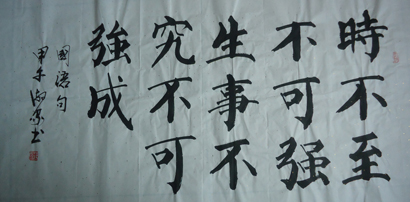 時不至
不可强
生事不
究不可
強成
國語句
甲午淑宗书